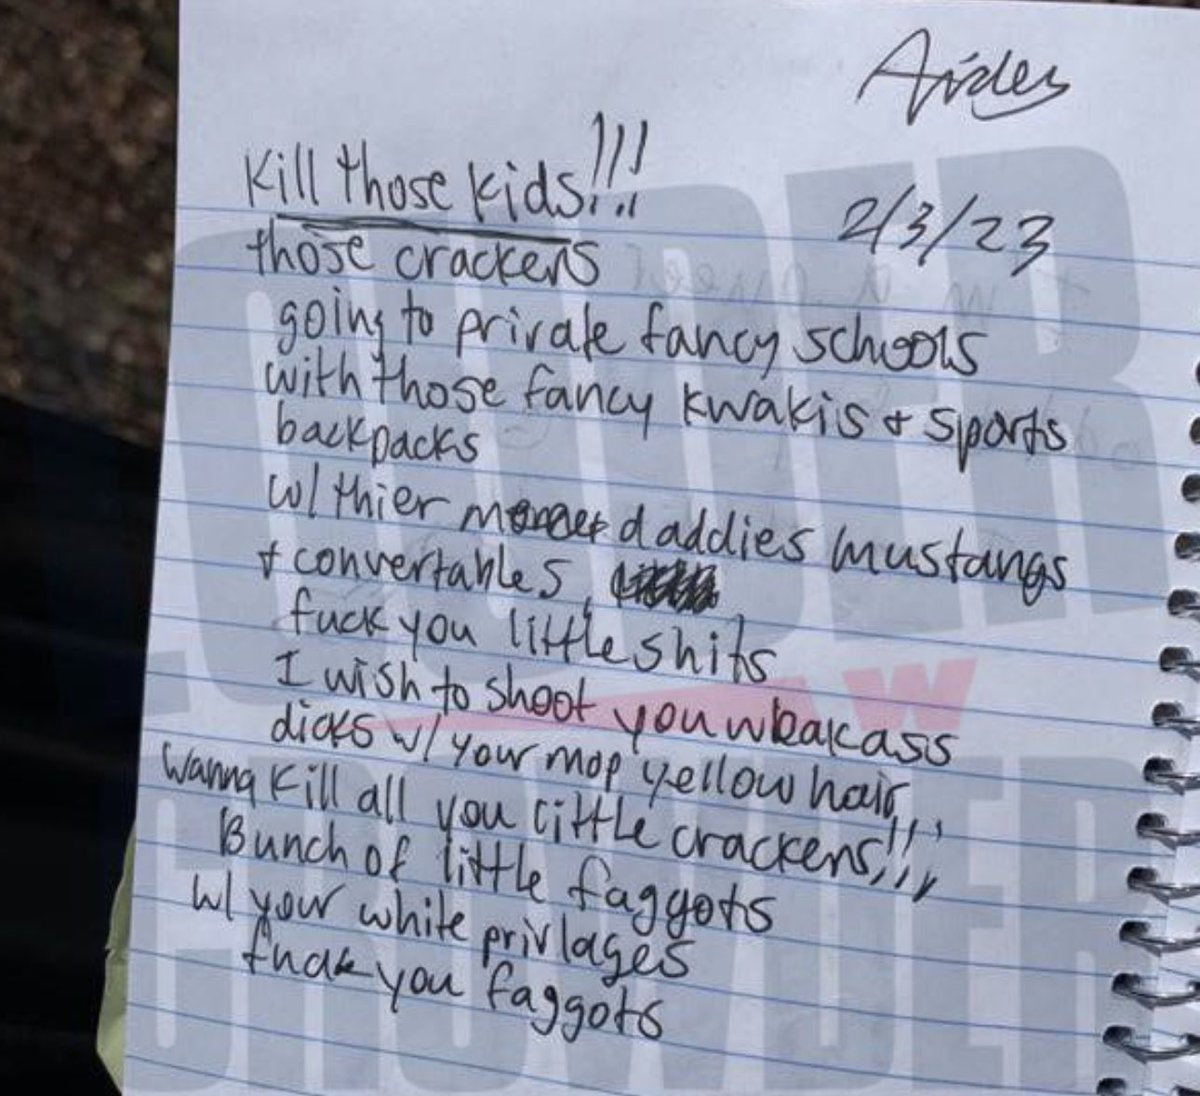 Aiden
Kill those kids!!!
2/3/23
those crackers
going to private fancy schools
with those fancy kwakis + sports
backpacks
w/ thier daddies mustangs
+ convertables
fuck you little shits
I wish to shoot you weakass
dicks w/ your mop yellow hair,
wanna kill all you little crackers!!!
Bunch of little faggots
w/ your white privlages
fuck you faggots
LOUDER
W
CROWDER